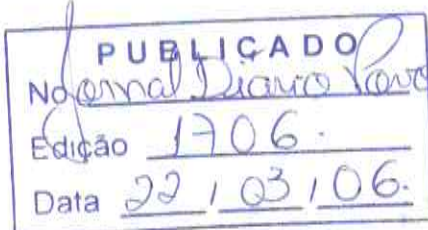 PUBLICADO
No Jornal Diário Povo
Edição 1706.
Data 22 / 03 / 06.